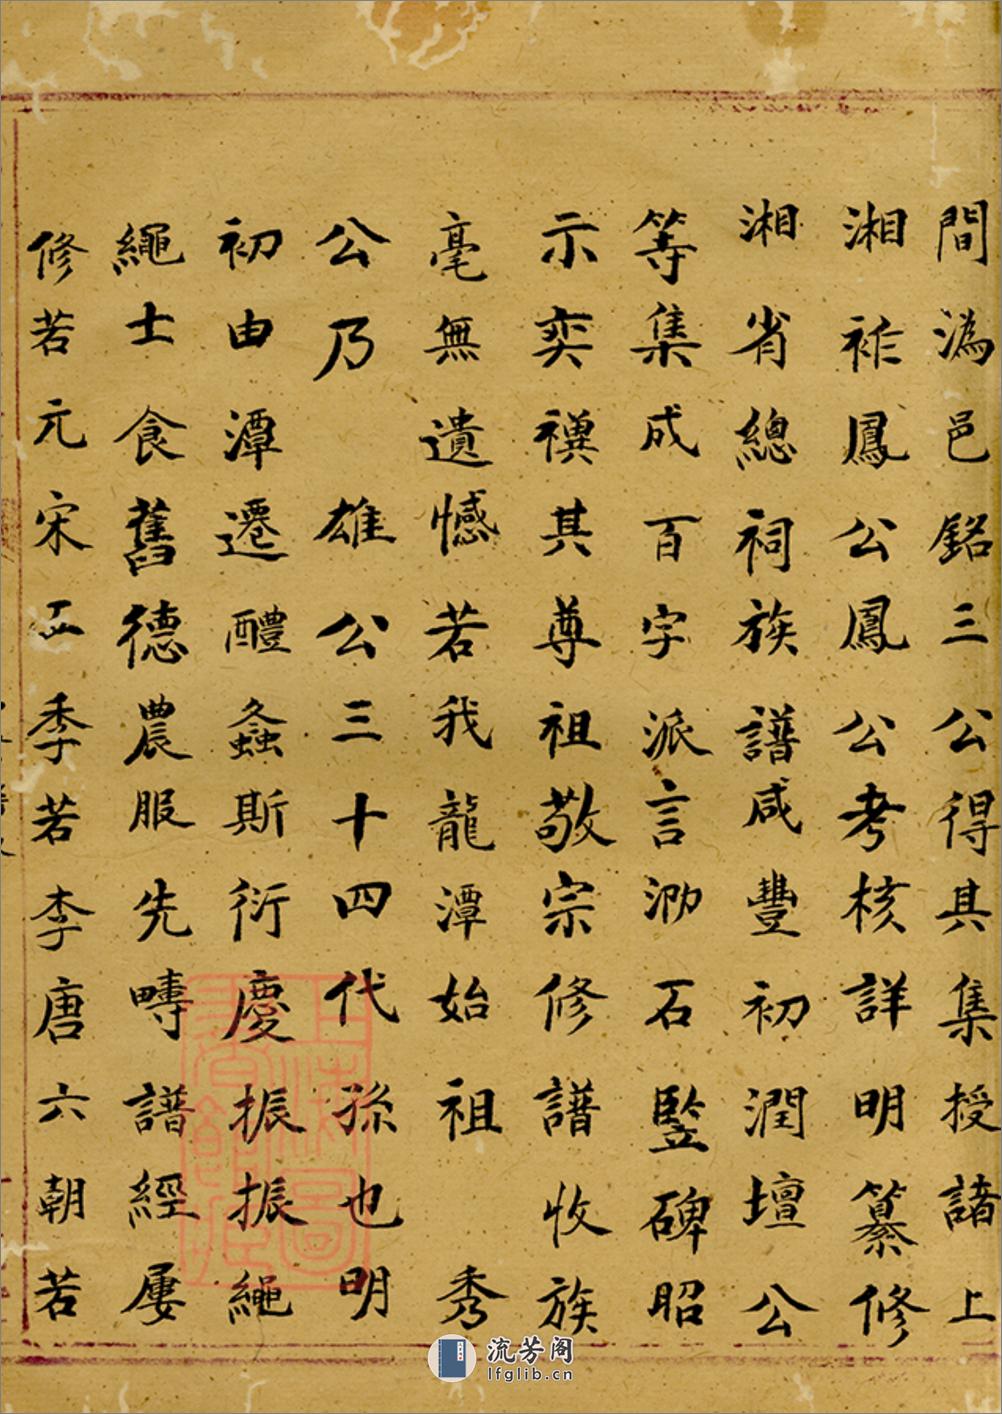 間溈邑銘三公得其集授諸上
湘祚鳳公鳳公考核詳明纂修
湘省總祠族譜咸豐初潤壇公
等集成百字派言泐石監碑昭
示奕禩其尊祖敬宗修譜收族
毫無遺憾若我龍潭始祖 秀
公乃 雄公三十四代孫也明
初由潭遷醴螽斯衍慶振振繩
繩士食舊德農服先疇譜經屢
修若元宋 季若李唐六朝若
流芳阁
lfglib.cn